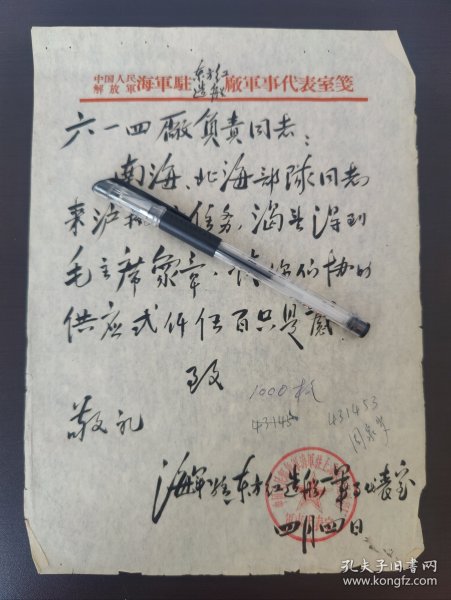 中国人民解放軍海軍駐东方红造船廠軍事代表室箋
六一四厰負責同志:
南海、北海部隊同志
来沪 任务,渴望得到
毛主席象章, 你们协助
供应弍仟伍百只是感
致
1000枚
敬礼
43145
431453
海军驻东方红造船厂军事代表室
四月四日
孔夫子旧书网
www.kongfz.com